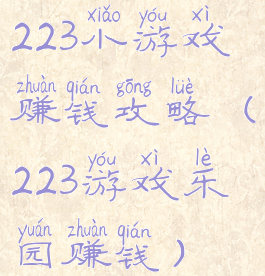 xiǎo yóu xì
223小游戏
zhuàn qián gōng lüè
赚钱攻略（
yóu xì lè
223游戏乐
yuán zhuàn qián
园赚钱）